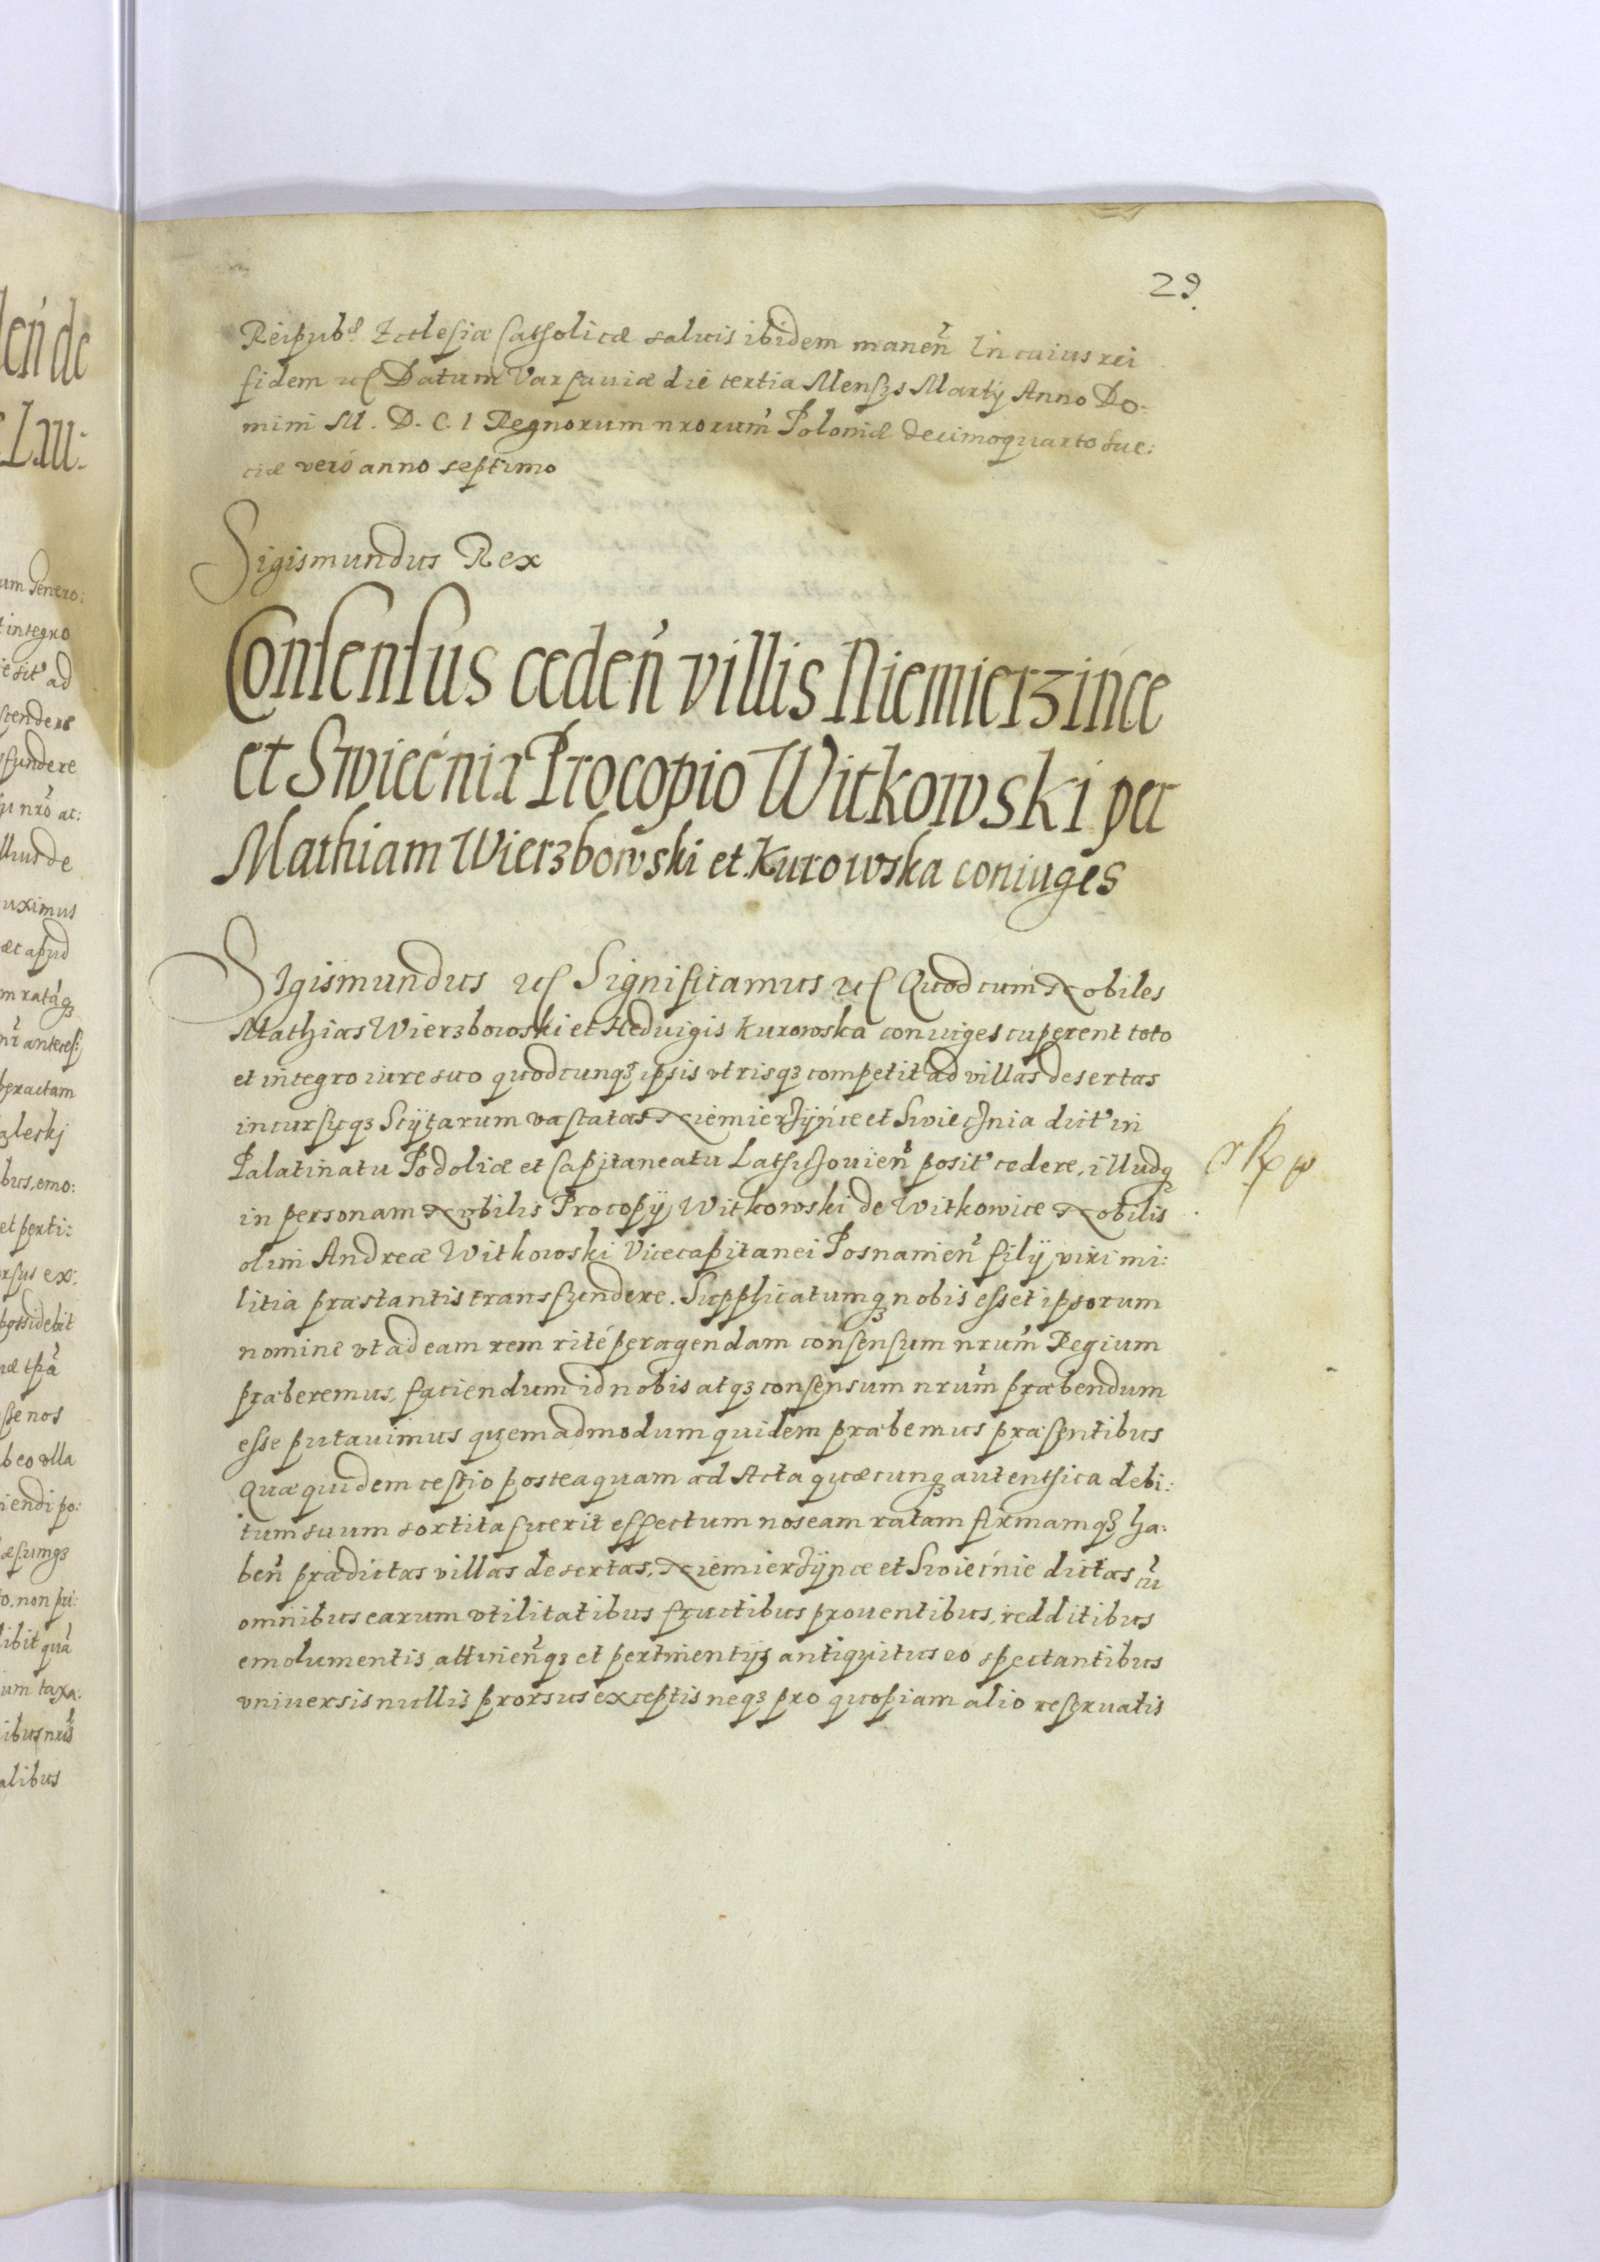 29
Reipubᵉ Ecclesiæ Catholicæ saluis ibidem manen̄ In cuius rei
fidem etc Datum Varsauiæ die tertia Mensis Martÿ Anno Do-
mini M. D. C. I Regnorum nrorum Poloniæ decimoquarto Sue:
ciæ veró anno septimo
Sigismundus Rex
Consensus ceden̄ villis Niemierzince
et Swiećnia Procopio Witkowski per
Mathiam Wierzbowski et Kurowska coniuges
Sigismundus etc Significamus etc Quod cum Nobiles
Mathias Wierzbowski et Hedvigis Kurowska coniuges cuperent toto
et integro iure suo quodcunqȝ ipsis vtrisqȝ competit ad villas desertas
incursuqȝ Scÿtarum vastatas Niemierzÿńce et Swiecznia dict' in
Palatinatu Podoliæ et Capitaneatu Latyczovien̄ posit' cedere, illudqȝ
in personam Nobilis Procopÿ Witkowski de Witkowice Nobilis
olim Andreæ Witkowski Vicecapitanei Posnanien̄ filÿ viri mi:
litia præstantis transfundere. Supplicatumqȝ nobis esset ipsorum
nomine vt ad eam rem rité peragendam consensum nrum̄ Regium
præberemus, faciendum id nobis atqȝ consensum nrum̄ præbendum
esse putauimus quemadmodum quidem præbemus præsentibus
Quæ quidem cessio posteaquam ad Acta quæcunqȝ autenthica debi:
tum suum sortita fuerit effectum nos eam ratam firmamqȝ ha:
ben̄ prædictas villas desertas, Niemierzÿncæ et Swiećnie dictas cū
omnibus earum vtilitatibus fructibus prouentibus, redditibus
emolumentis attinen̄qȝ et pertinentÿs antiquitus eo spectantibus
vniuersis nullis prorsus exceptis neqȝ pro quopiam alio reseruatis